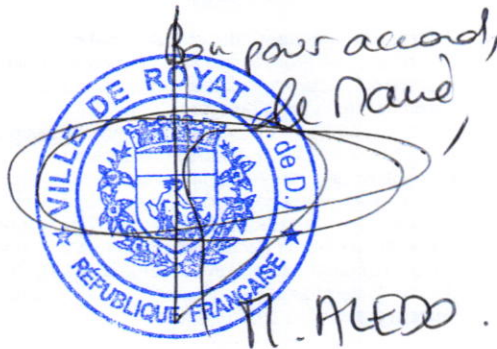 Bon pour accord,
Le Maire,
VILLE DE ROYAT (P. de D.)
RÉPUBLIQUE FRANÇAISE
M. ALEDO.